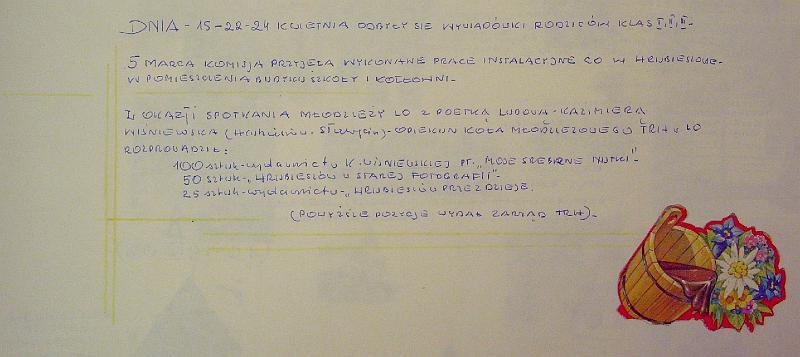 DNIA - 15-22-24 KWIETNIA ODBYŁY SIĘ WYWIADÓWKI RODZICÓW KLAS I, II, III -
5 MARCA KOMISJA PRZYJĘŁA WYKONANE PRACE INSTALACYJNE CO W HRUBIESZOW-
W POMIESZCZENIA BUDYNKU SZKOŁY I KOTŁOWNI -
Z OKAZJI SPOTKANIA MŁODZIEŻY LO Z POETKĄ LUDOWĄ - KAZIMIERĄ
WIŚNIEWSKĄ - OPIEKUN KOŁA MŁODZIEŻOWEGO TRH w LO
ROZPROWADZIŁ:
100 sztuk - wydawnictw K. WIŚNIEWSKIEJ PT. „MOJE SREBRNE NUTKI" -
50 sztuk - „HRUBIESZÓW W STAREJ FOTOGRAFII" -
25 sztuk - wydawnictw - „HRUBIESZÓW PRZEZ DZIEJE.
(POWYŻSZE POZYCJE WYDAŁ ZARZĄD TRH) -